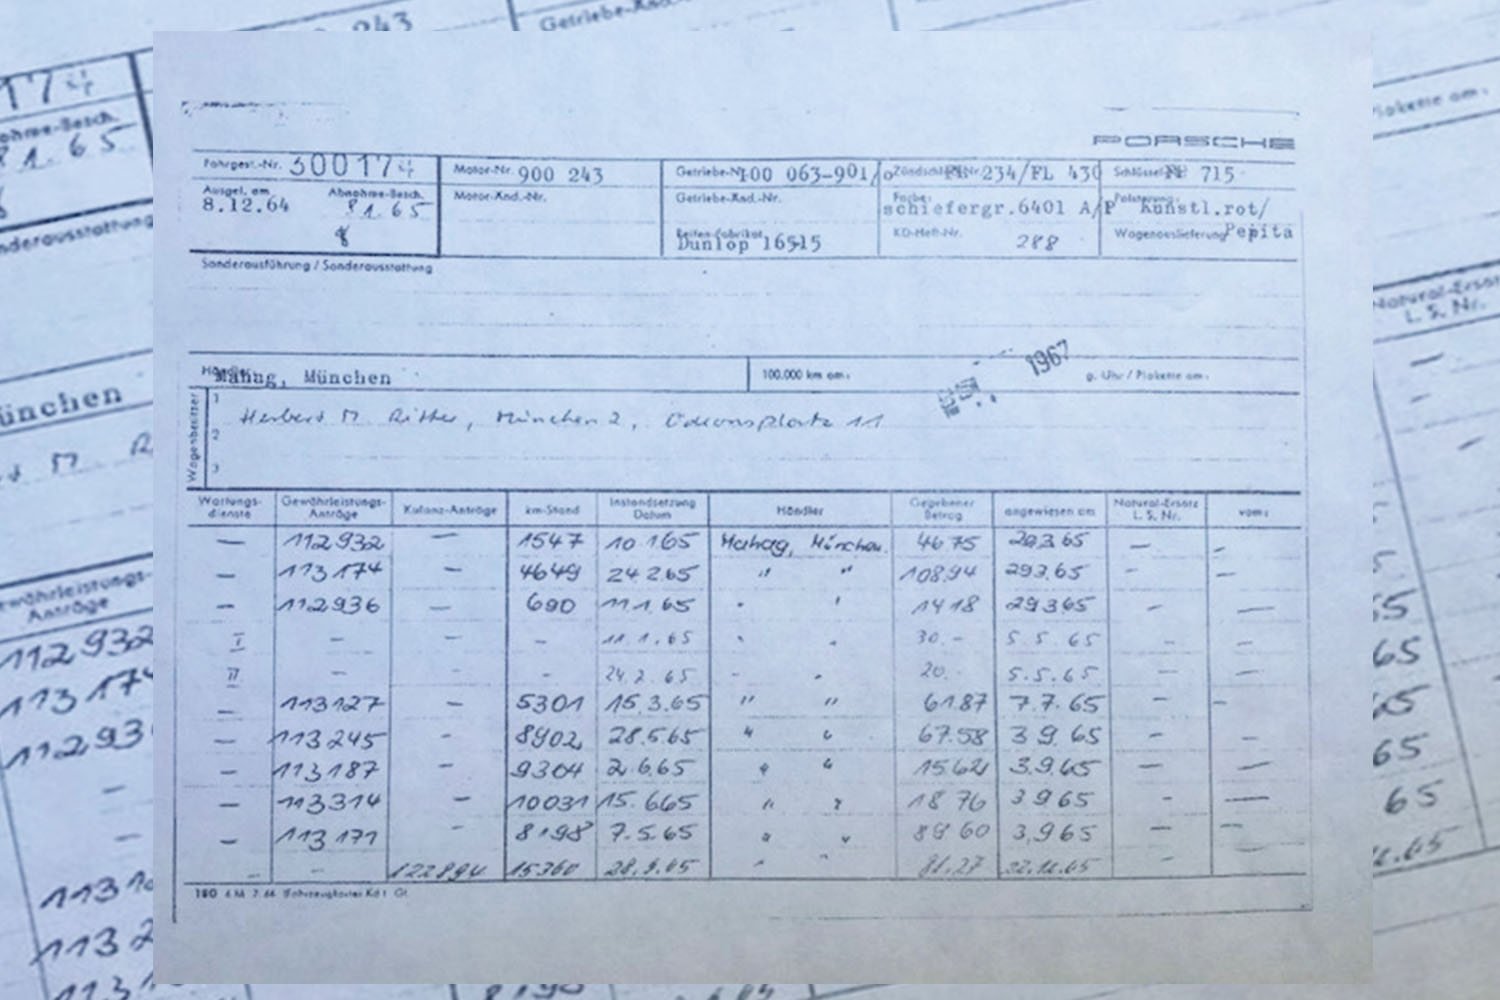 PORSCHE
Fahrgest.-Nr. 300174 Motor-Nr. 900 243 Getriebe-Nr. 100 063-901/0 Zündschl.-Nr. 234/FL 430 Schlüssel-Nr. 715
Ausgel. am Abnahme-Besch. Motor-Änd.-Nr. Getriebe-Änd.-Nr. Farbe: Polsterung:
8.12.64 8.1.65 schiefergr.6401 A/P Kunstl.rot/
Reifen-Fabrikat KD-Heft-Nr. 288 Wagenauslieferung Pepita
Dunlop 165-15
Sonderausführung / Sonderausstattung
1967
Händler Mahag, München 100.000 km am: g. Uhr / Plakette am:
Wagenbesitzer
1 Herbert M. Ritter, München 2, Odeonsplatz 11
2
3
Wartungs-dienste Gewährleistungs-Anträge Kulanz-Anträge km-Stand Instandsetzung Datum Händler Gegebener Betrag angewiesen am Natural-Ersatz L. S. Nr. vom:
— 112932 — 1547 10.1.65 Mahag, München 46.75 29.3.65 — —
— 113174 — 4649 24.2.65 " " 108.94 29.3.65 — —
— 112936 — 690 11.1.65 " " 14.18 29.3.65 — —
I — — — 11.1.65 " " 30.- 5.5.65 — —
II — — — 24.2.65 " " 20.- 5.5.65 — —
— 113127 — 5301 15.3.65 " " 61.87 7.7.65 — —
— 113245 — 8902 28.5.65 " " 67.58 3.9.65 — —
— 113187 — 9304 2.6.65 " " 15.62 3.9.65 — —
— 113314 — 10031 15.6.65 " " 18.76 3.9.65 — —
— 113171 — 8198 7.5.65 " " 89.60 3.9.65 — —
— — 122894 15360 28.9.65 " " 81.27 22.12.65 — —
180